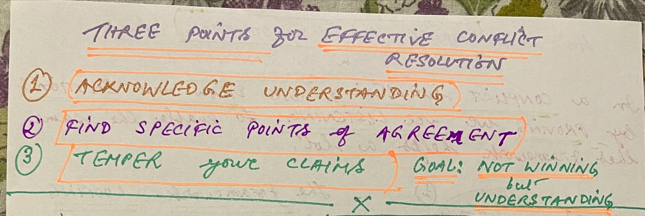 THREE POINTS for EFFECTIVE CONFLICT
RESOLUTION
① ACKNOWLEDGE UNDERSTANDING
② FIND SPECIFIC POINTS of AGREEMENT
③ TEMPER your CLAIMS GOAL: NOT WINNING
but
UNDERSTANDING
X